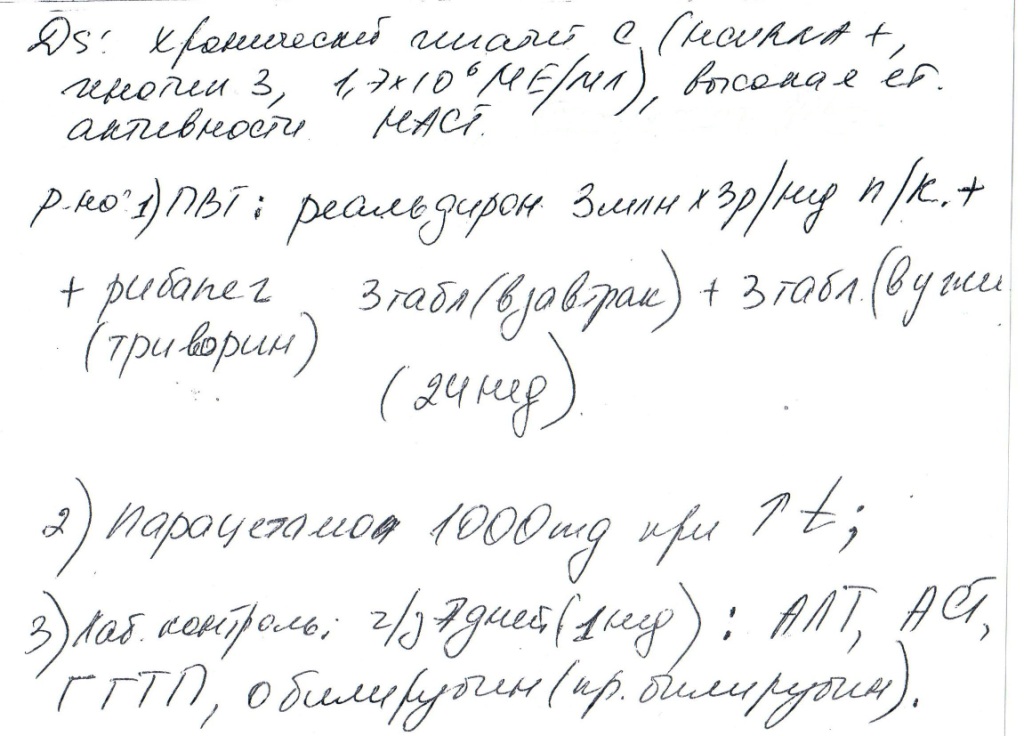 Ds: Хронический гепатит С (HCVRNA +,
генотип 3, 1,7×10⁶ МЕ/мл), высокая ст.
активности НАСГ.
Р-но: 1) ПВТ: реальдирон 3млн х 3р/нед п/к. +
+ рибапег 3табл (в завтрак) + 3 табл. (в ужи
(триворин)
(24 нед)
2) Парацетамол 1000mg при ↑ t;
3) Лаб. контроль: ч/з 7 дней (1 нед) : АЛТ, АСТ,
ГГТП, о билирубин (пр. билирубин).